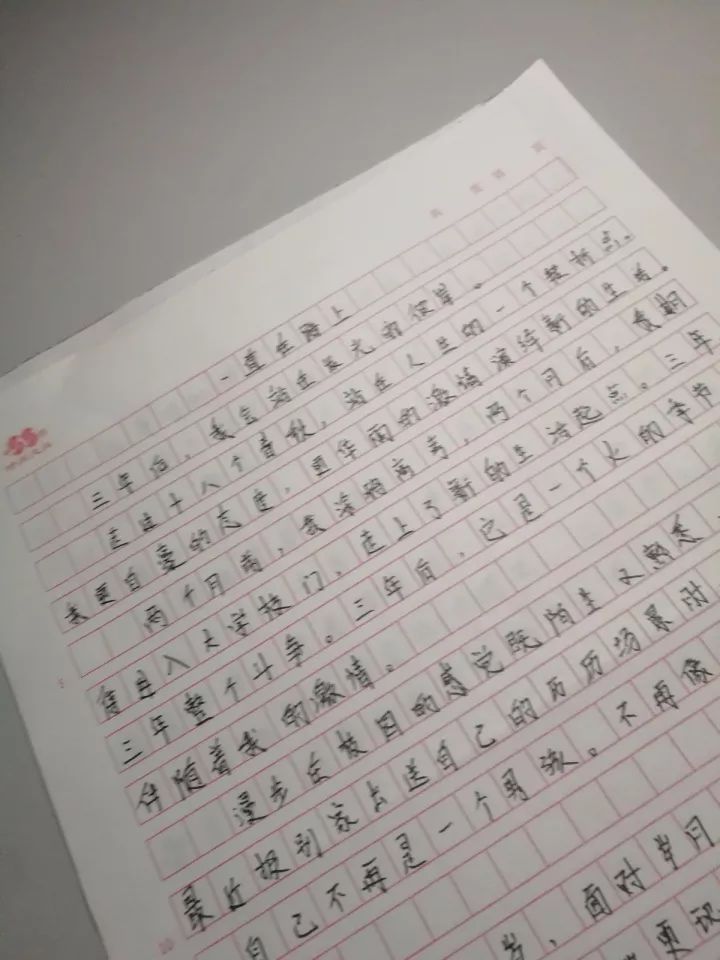 第 页
一直在路上
三年后，我会站在时光的彼岸。
走过十八个春秋，站在人生的一个转折点。
我要自豪的态度，更伴雨的激情演绎新的生活。
两个月前，我渐将离弃，两个月后，负期
待进入大学校门，走上了新的生活起点。三年
三年整个斗争。三年后，它是一个火的季节
伴随着我的激情。
漫步在校园的感觉既陌生又熟悉
最近报到家长送自己的历历场景时
自己不再是一个男孩。不再像
岁，面对岁月
更现
5
10